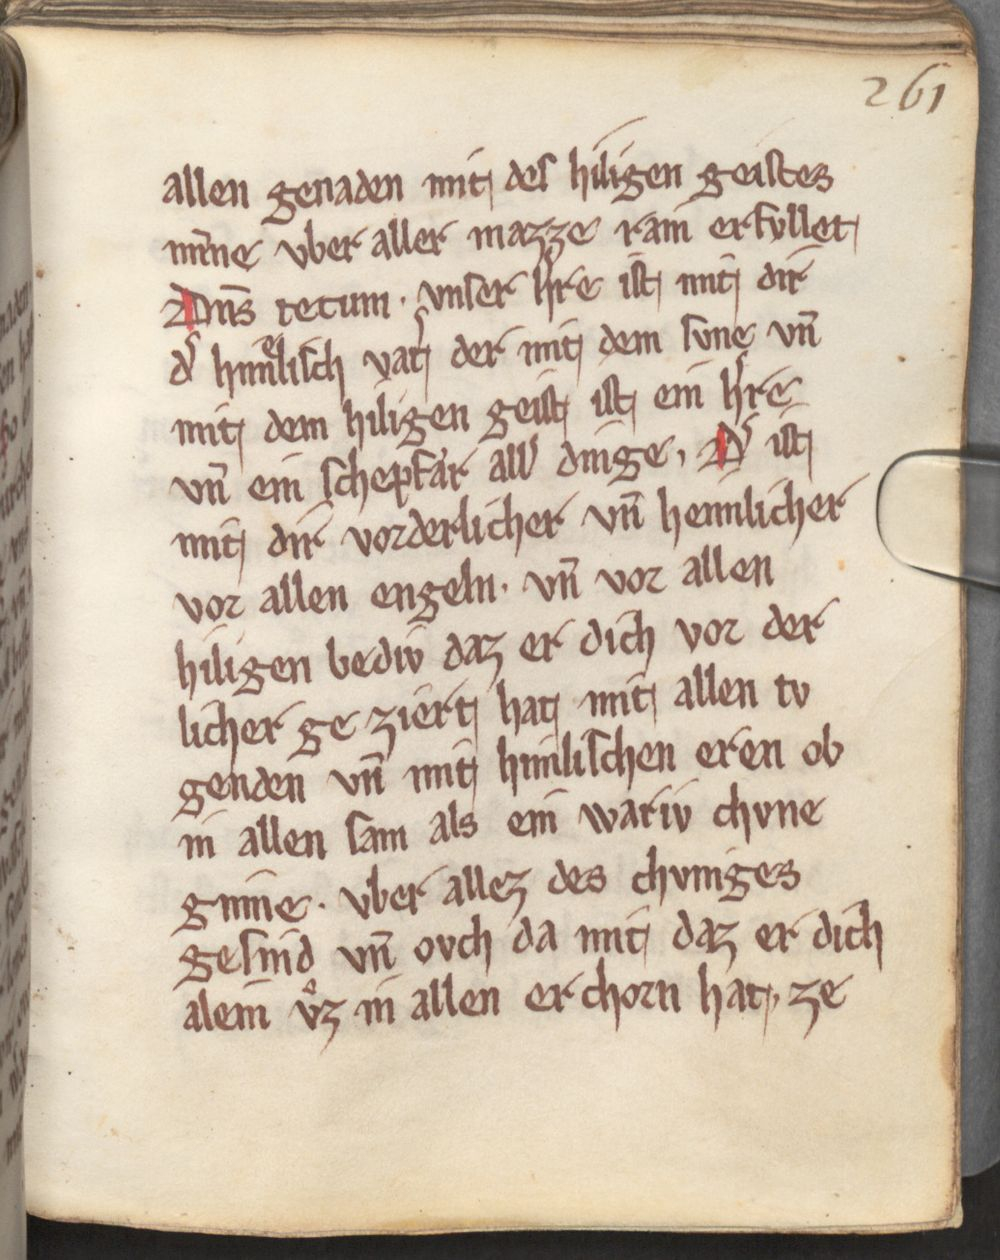 261
allen genaden mit des hiligen geistes
minne vber aller mazze ram erfvllet.
Dn̄s tecum. vnser hre ist mit dir
d' himelisch vat' der mit dem svne vn̄
mit dem hiligen geist ist ein h're
vn̄ ein schepfar all' dinge. D' ist
mit dir vorderlicher vn̄ heimlicher
vor allen engeln. vn̄ vor allen
hiligen bediv daz er dich vor der
licher ge ziert hat mit allen tv
genden vn̄ mit himlischen eren ob
in allen sam als ein wariv chvne
ginne. vber allez des chvniges
gesind vn̄ ovch da mit daz er dich
alein vͦz in allen er chorn hat, ze